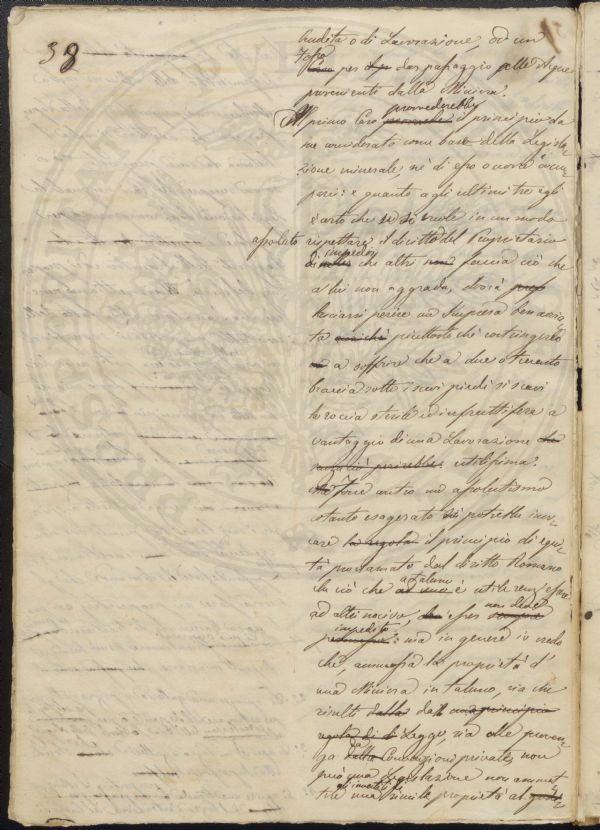 38
hudita o di Lavorazione, od un
Fosso per dar passaggio alle Aque
provenienti dalla Miniera.
Al primo Caso provvederebbe il principio da
me considerato come base della Legisla-
zione minerale, nè di esso occorre occu-
parsi: e quanto agli ultimi tre egli
è certo che se si vuole in un modo
assoluto rispettare il diritto del Proprietario
d'impedir che altri faccia ciò che
a lui non aggrada, dovrà
lasciarsi perire un'Impresa bene avvia-
ta piuttosto che costringerlo
a soffrire che a due o trecento
braccia sotto i suoi piedi si scavi
la roccia sterile ed infruttifera a
vantaggio di una Lavorazione
utilissima.
Forse contro un assolutismo
cotanto esagerato si potrebbe invo-
care la regola il principio di equi-
tà proclamato dal diritto Romano
che ciò che a taluno è utile senz'esser
ad altri nocivo, esser non deve
impedito: ma in genere io credo
che, ammessa la proprietà d'
una Miniera in taluno, sia che
risulti dalla
Legge, sia che proven-
ga da Convenzioni private, non
può una Legislazione non ammet-
tere una simile proprietà